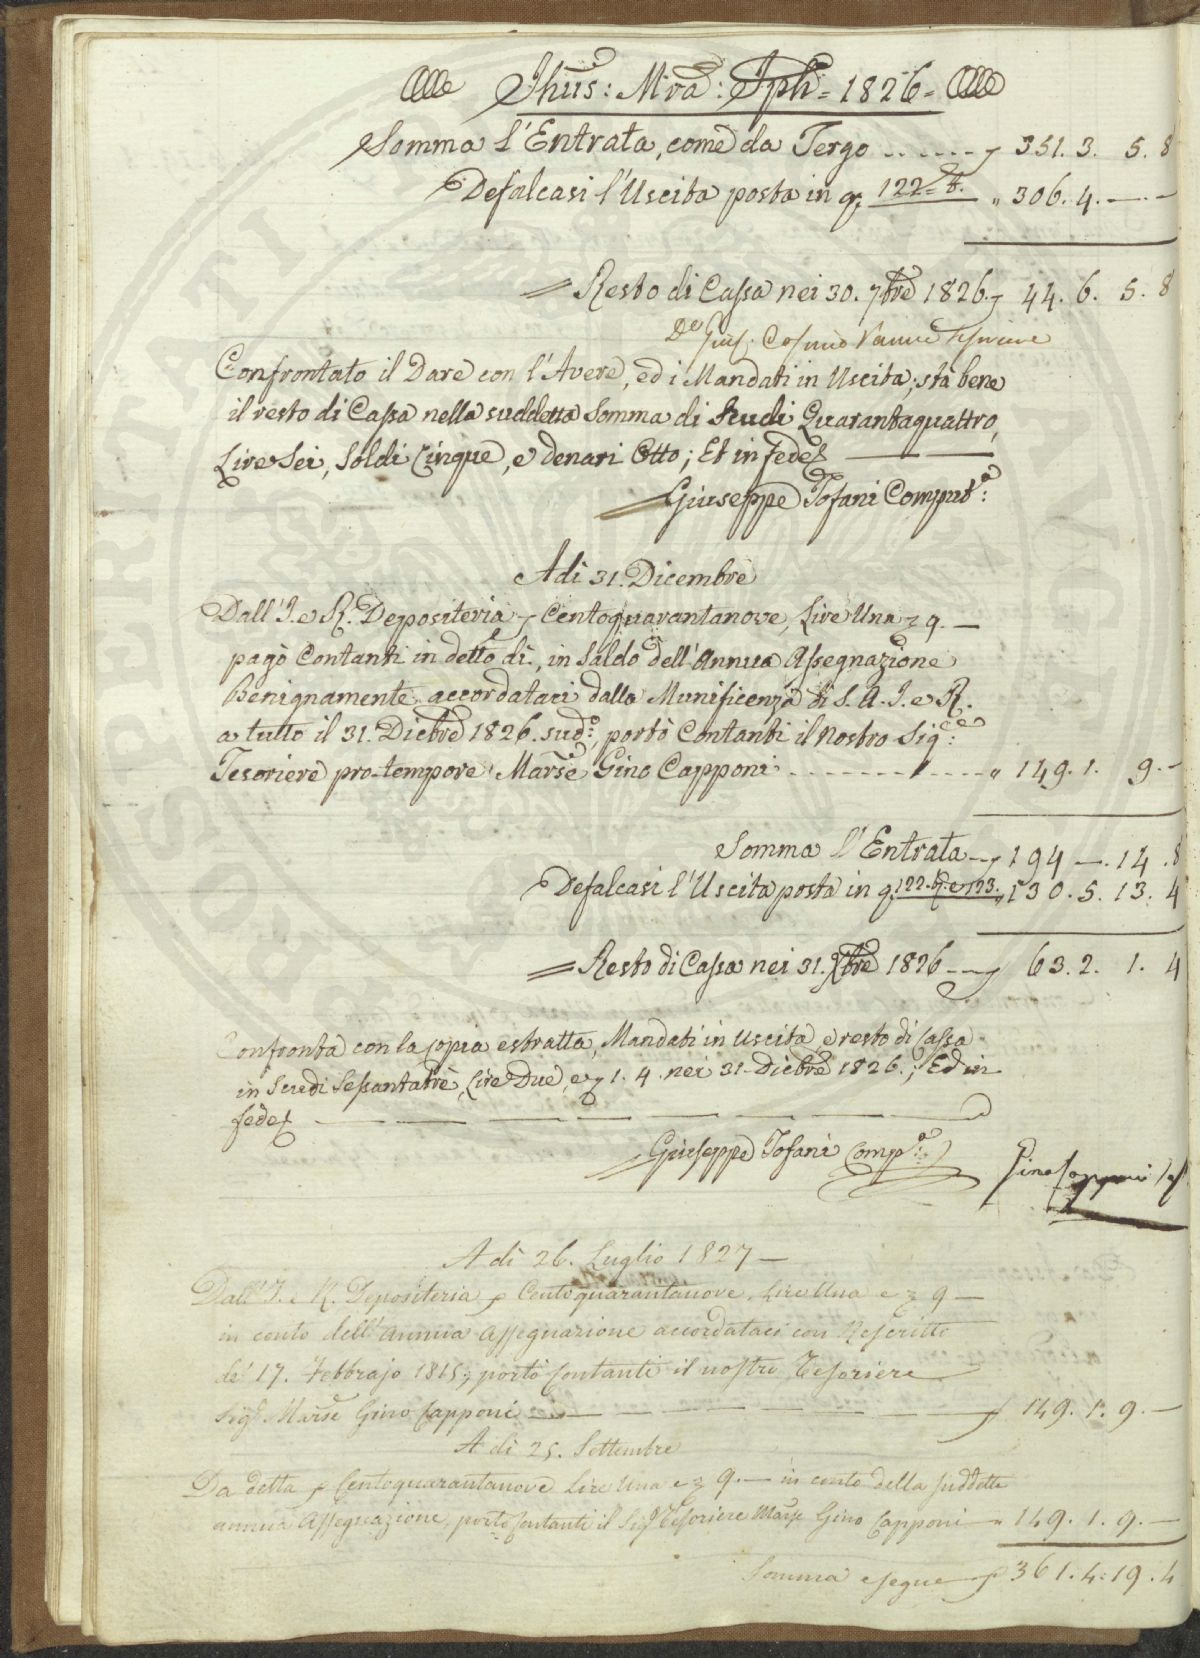 Jhus: Mra: Jph = 1826 =
Somma l'Entrata, come da Tergo ƒ 351. 3. 5. 8
Defalcasi l'Uscita posta in q. 122 = t. " 306. 4. — . —
= Resto di Cassa nei 30. 7bre 1826. ƒ 44. 6. 5. 8
Confrontato il Dare con l'Avere, ed i Mandati in Uscita, stà bene
il resto di Cassa nella suddetta Somma di Scudi Quarantaquattro,
Lire Sei, Soldi Cinque, e denari Otto; Et in fede
Giuseppe Tofani Comput.a:
A dì 31. Dicembre
Dall'I. e R. Depositeria ƒ Centoquarantanove, Lire Una e 9. —
pagò Contanti in detto dì, in Saldo dell'Annua Assegnazione
Benignamente accordataci dalla Munificenza di S. A. I. e R.
a tutto il 31. Dicbre 1826. sud.o, portò Contanti il Nostro Sig.re:
Tesoriere pro-tempore Marse Gino Capponi " 149. 1. 9. —
Somma l'Entrata ƒ 194 — . 14 . 8
Defalcasi l'Uscita posta in q. 122. t. e 123. " 130. 5. 13. 4
= Resto di Cassa nei 31. Xbre 1826 — ƒ 63. 2. 1. 4
Confronta con la copia estratta, Mandati in Uscita, e resto di Cassa
in Scudi Sessantatrè, Lire Due, e 1. 4. nei 31 Dicbre 1826.; Ed in
fede
Giuseppe Tofani Comp.a:
Gino Capponi
A dì 26. Luglio 1827 —
Dall'I. e R. Depositeria ƒ Centoquarantanove, Lire Una e 9 —
in conto dell'annua Assegnazione accordataci con Rescritto
de' 17. Febbrajo 1815; portò Contanti il nostro Tesoriere
Sigr. Marse Gino Capponi — ƒ 149. 1. 9. —
A dì 25. Settembre
Da detta ƒ Centoquarantanove Lire Una e 9. — in conto della suddetta
annua Assegnazione, portò Contanti il Sigr Tesoriere Marse Gino Capponi " 149. 1. 9. —
Somma e segue ƒ 361. 4. 19. 4